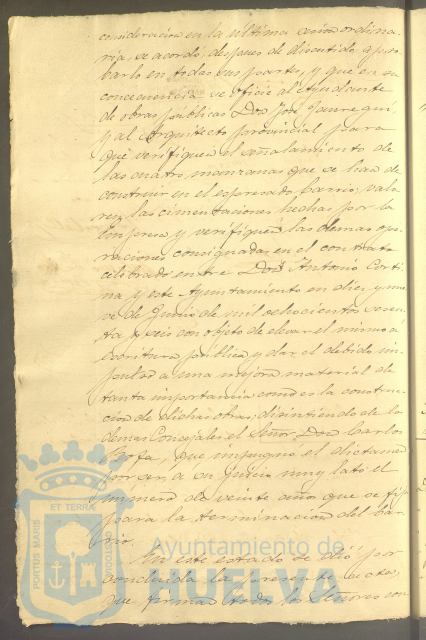 consideracion en la última sesion ordina-
ria, se acordó, despues de discutido, apro-
barlo en todas sus partes, y que en su
consecuencia se oficie al Ayudante
de obras públicas Don José Jauregui,
y al Arquitecto provincial para
que verifiquen el señalamiento de
las cuatro manzanas que se han de
construir en el espresado barrio,
las cimentaciones hechas por la
Empresa y verifiquen las demas ope-
raciones consignadas en el contrato
celebrado entre Don Antonio Corti-
na y este Ayuntamiento en diez y nue-
ve de Junio de mil ochocientos
y seis con objeto de elevar el mismo a
Escritura pública y dar el debido im-
pulso a una mejora material de
tanta importancia como es la construc-
cion de dichas obras; disintiendo de los
demas Concejales el Señor Don Carlos
que impugnó el dictamen
por ser, a su juicio muy lato el
número de veinte años que se fija
para la terminacion del bar-
rio.
En este estado se dió por
concluida la presente acta,
que firman todos los Señores con
PORTUS MARIS
ET TERRÆ
CUSTODIA
Ayuntamiento de
HUELVA